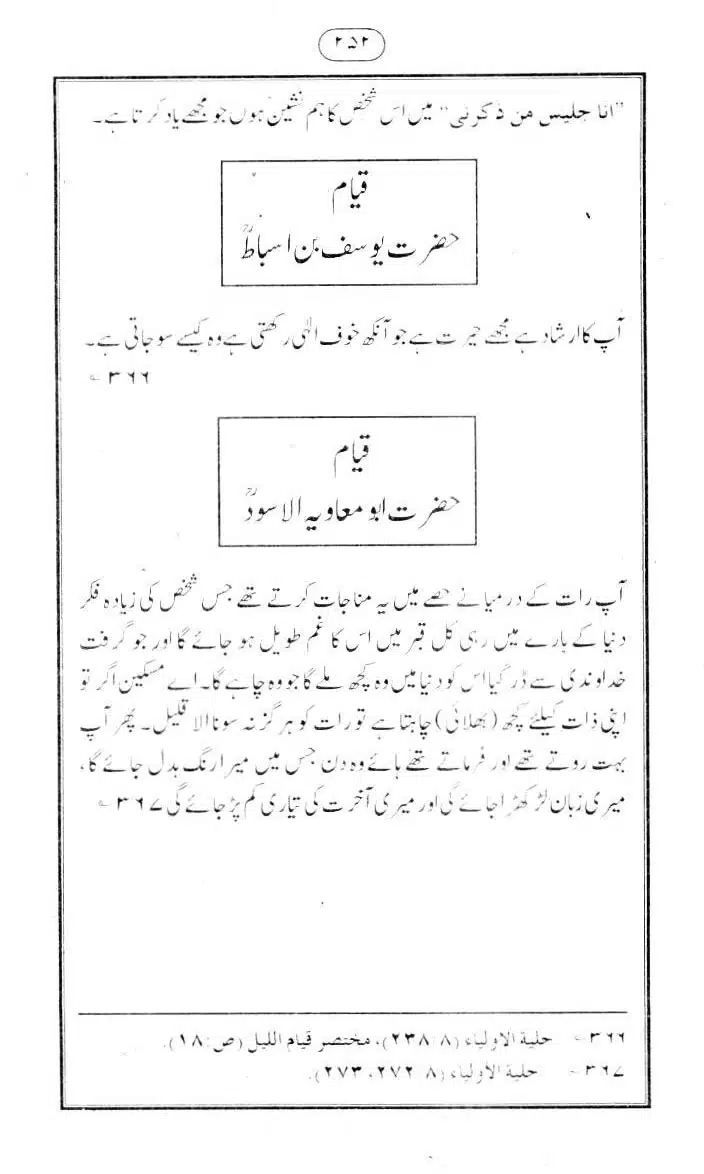 ۲۵۲
"انا جلیس من ذکرنی" میں اس شخص کا ہم نشین ہوں جو مجھے یاد کرتا ہے۔
قیام
حضرت یوسف بن اسباطؒ
آپ کا ارشاد ہے مجھے حیرت ہے جو آنکھ خوف الٰہی رکھتی ہے وہ کیسے سو جاتی ہے۔
۳۶۶؎
قیام
حضرت ابو معاویہ الاسودؒ
آپ رات کے درمیانے حصے میں یہ مناجات کرتے تھے جس شخص کی زیادہ فکر
دنیا کے بارے میں رہی کل قبر میں اس کا غم طویل ہو جائے گا اور جو گرفت
خداوندی سے ڈر گیا اس کو دنیا میں وہ کچھ ملے گا جو وہ چاہے گا۔ اے مسکین اگر تو
اپنی ذات کیلئے کچھ (بھلائی) چاہتا ہے تو رات کو ہرگز نہ سونا الا قلیل۔ پھر آپ
بہت روتے تھے اور فرماتے تھے ہائے وہ دن جس میں میرا رنگ بدل جائے گا،
میری زبان لڑکھڑا جائے گی اور میری آخرت کی تیاری کم پڑ جائے گی ۳۶۷؎
۳۶۶؎ حلیة الاولیاء (۸/۲۳۸)، مختصر قیام اللیل (ص:۱۸).
۳۶۷؎ حلیة الأولیاء (۸/۲۷۲، ۲۷۳).